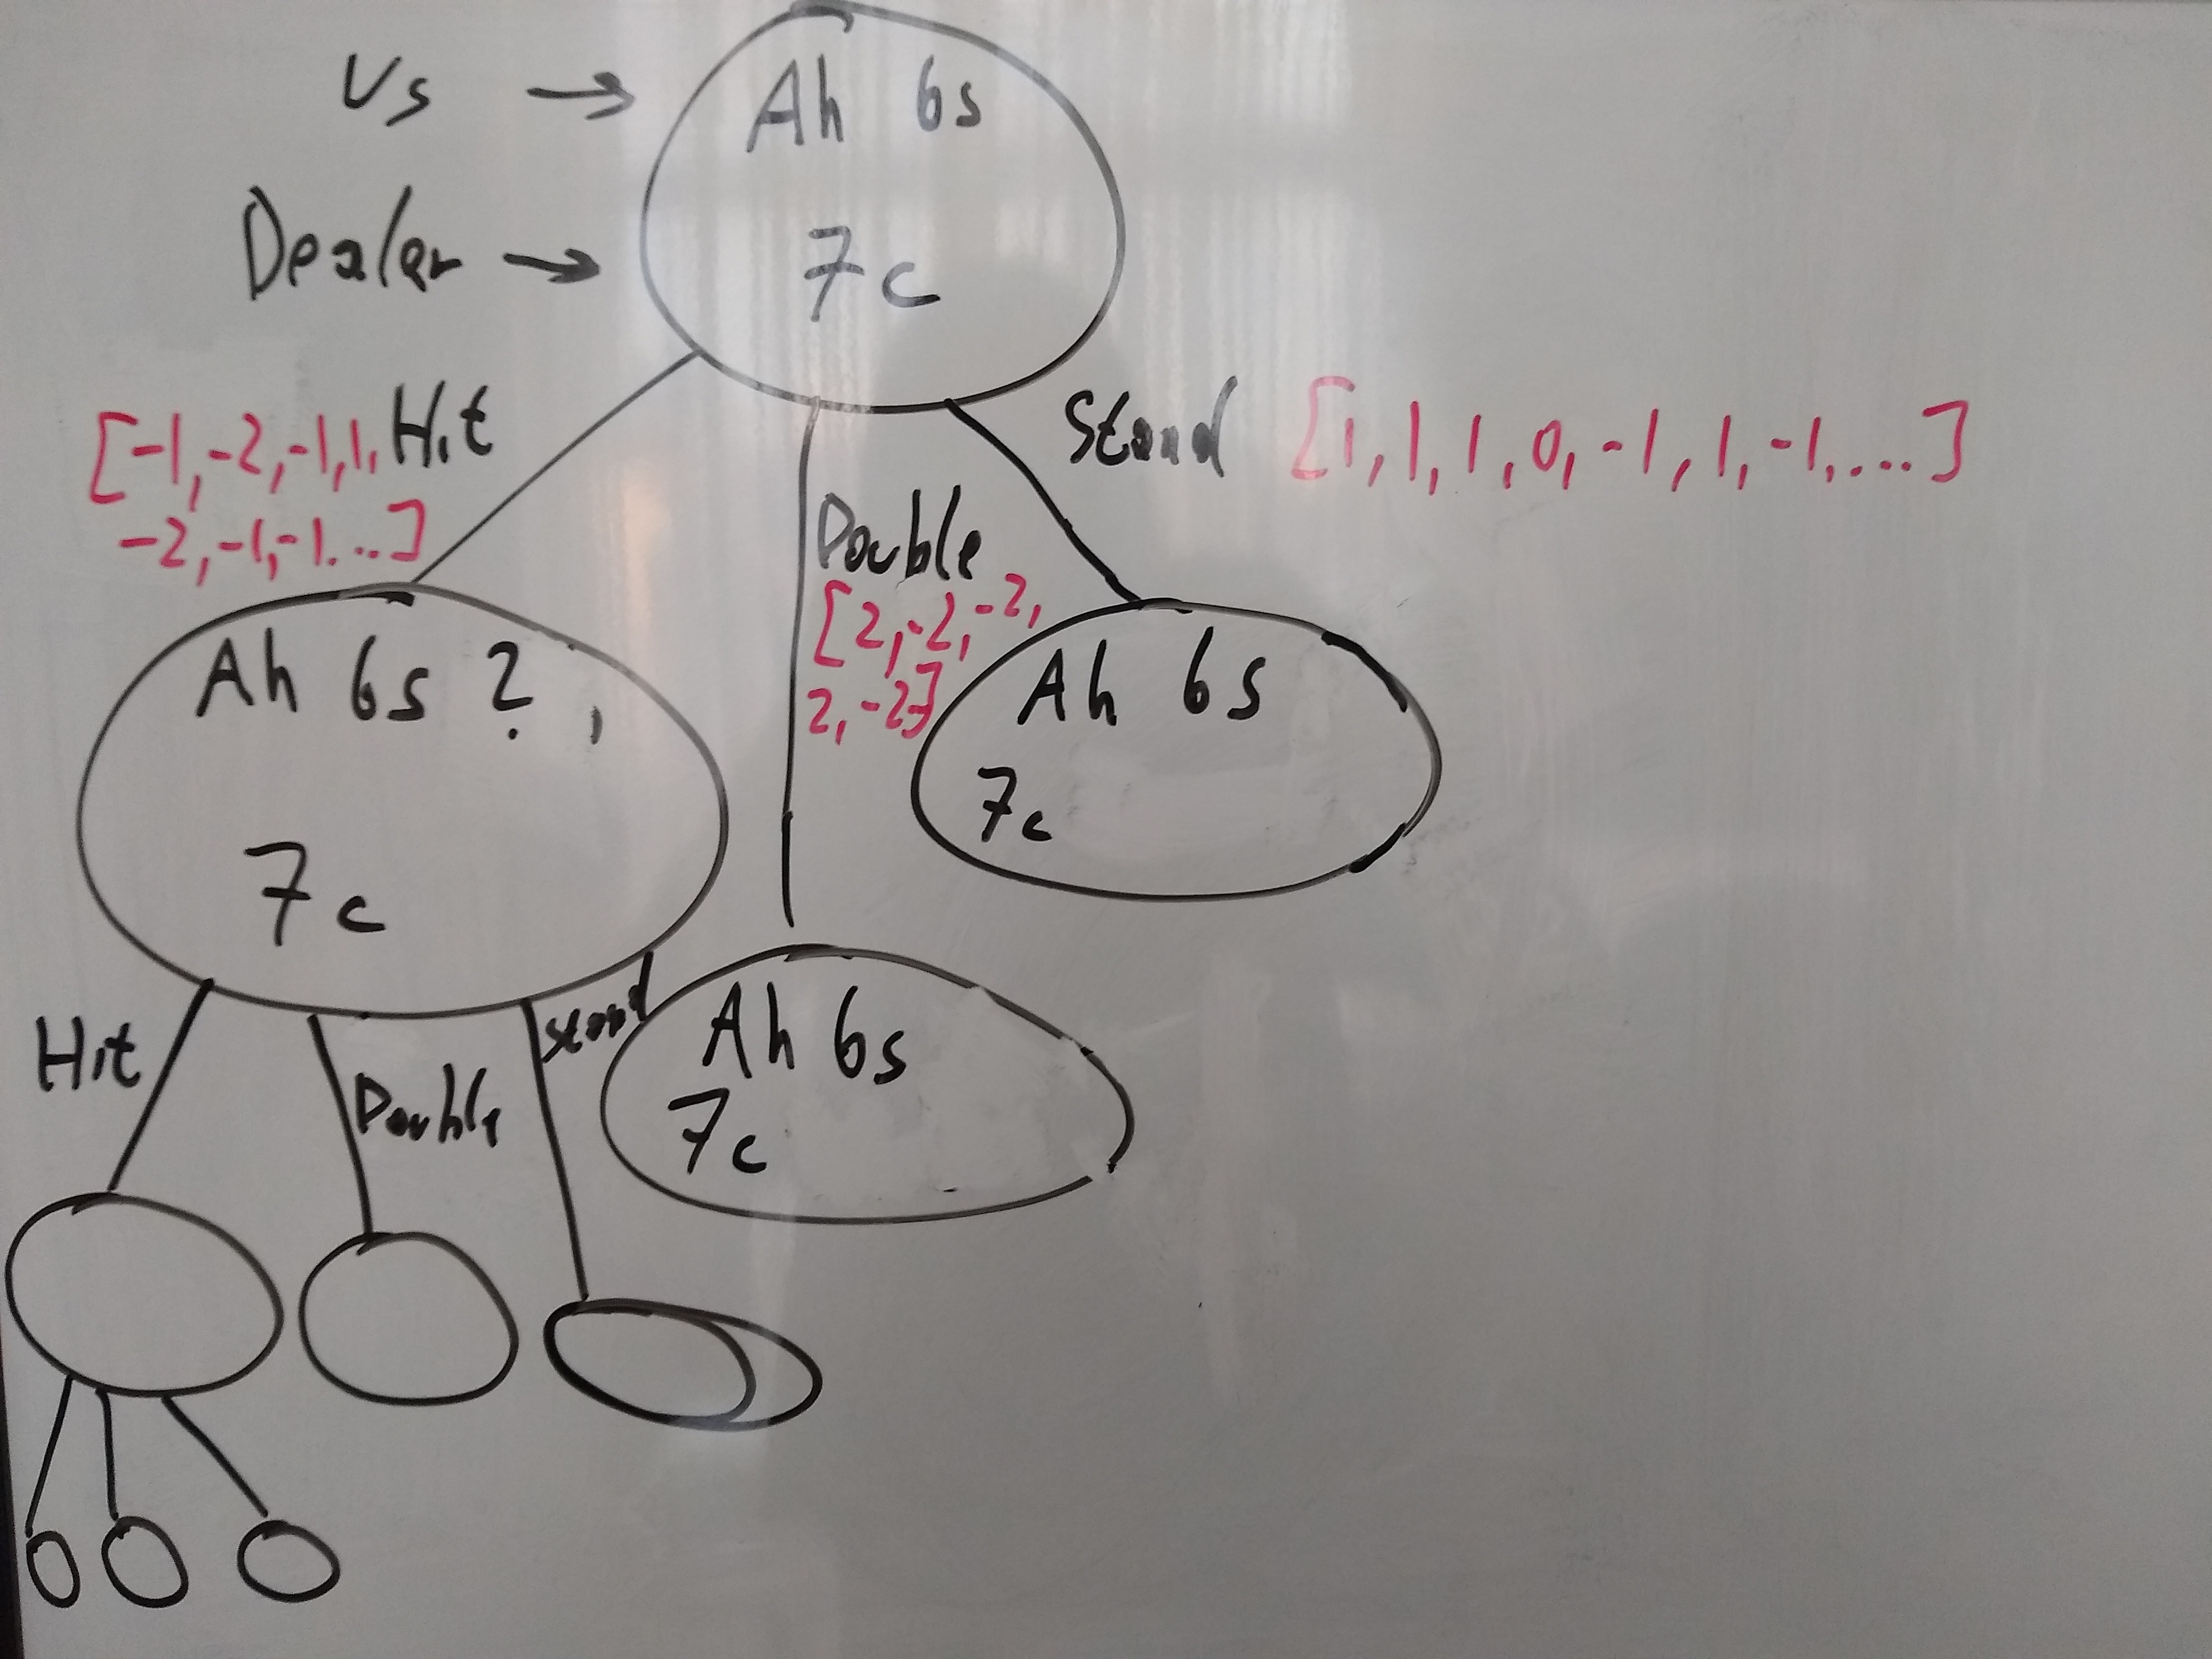 Us →
Ah 6s
Dealer →
7c
[-1,-2,-1,1,
-2,-1,-1...]
Hit
Stand [1,1,1,0,-1,1,-1,...]
Double
[2,-2,-2,
2,-2]
Ah 6s ?
7c
Ah 6s
7c
Hit
Double
Stand
Ah 6s
7c